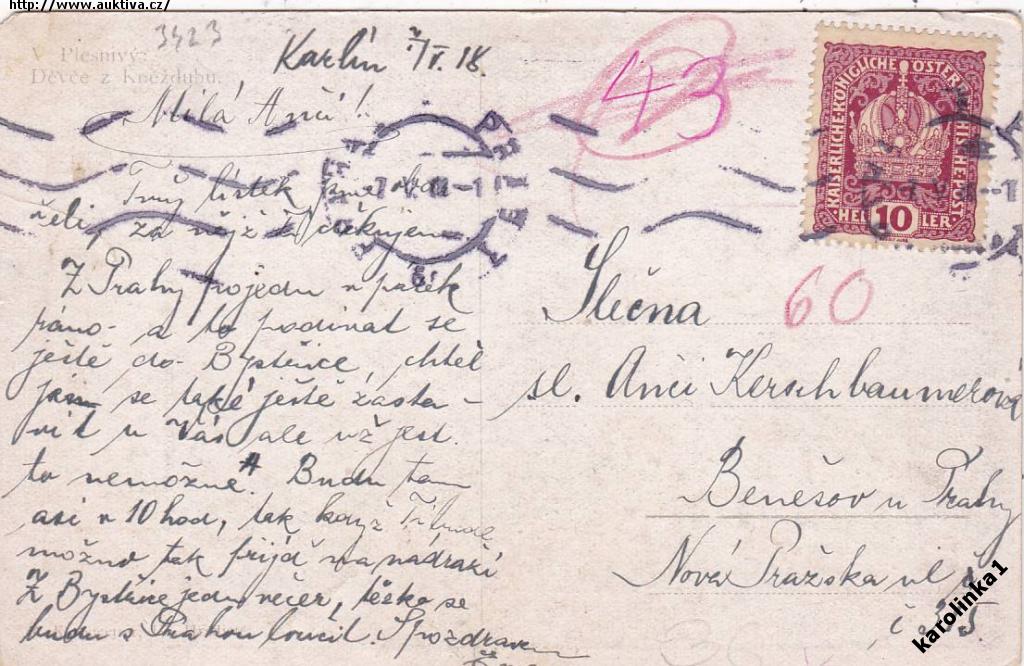 http://www.auktiva.cz/
3423
V. Plesnivý:
Děvče z Kněždubu.
Karlín 7/V. 18.
Milá Anči!
Tvůj lístek jsme obdr
želi, za nějž Ti děkujem
Z Prahy pojedu v pátek
ráno a to podívat se
ještě do Bystřice, chtěl
jsem se také ještě zasta-
vit u Vás ale už jest
to nemožné. Budu tam
asi v 10 hod, tak když Ti bude
možno tak přijď na nádraží
Z Bystřice jedu večer, těžko se
budu s Prahou loučil. S pozdravem
43
KAISERLICHE KÖNIGLICHE ÖSTERREICHISCHE POST
HELLER
10
60
Slečna
sl. Anči Kerschbaumerová
Benešov u Prahy
Nová Pražská ul
karolinka1